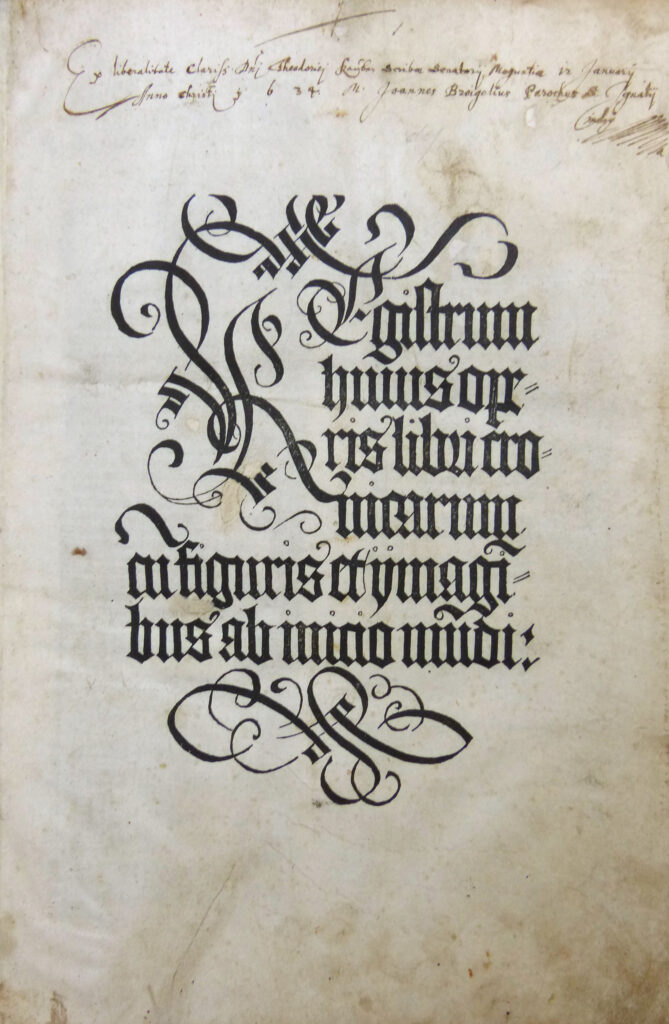 Ex liberalitate Clariss Dnj Theodorici Scribæ Senatorij Moguntiæ 12 Januarij
Anno Christi 1634 M. Joannes Parochus S. Ignatij
REgistrum
huius ope-
ris libri cro-
nicarum
cū figuris et ymagi-
bus ab inicio mūdi: